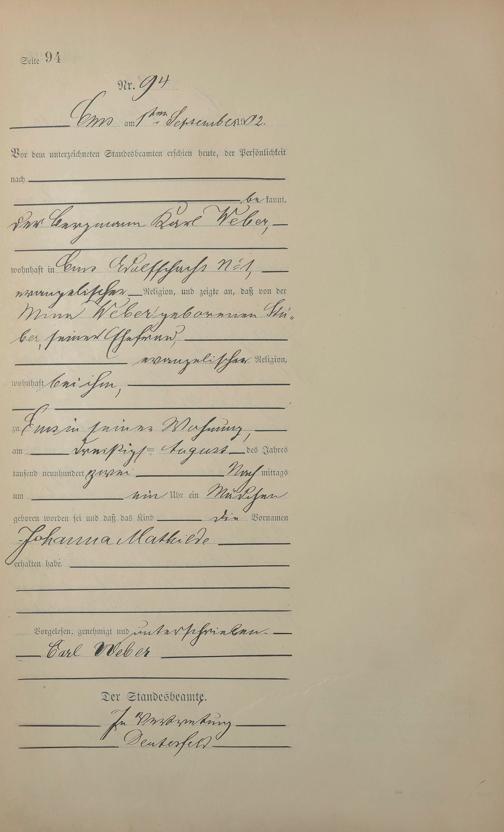 Seite 94
Nr. 94
Ems am 1ten September 1902.
Vor dem unterzeichneten Standesbeamten erschien heute, der Persönlichkeit
nach
be kannt,
der Bergmann Karl Weber,
wohnhaft in Ems Adolfschacht
evangelischer Religion, und zeigte an, daß von der
Mina Weber geborenen Stü-
ber, seiner Ehefrau,
evangelischer Religion,
wohnhaft bei ihm,
zu Ems in seiner Wohnung,
am dreißigsten August des Jahres
tausend neunhundert zwei Nach mittags
um ein Uhr ein Mädchen
geboren worden sei und daß das Kind die Vornamen
Johanna Mathilde
erhalten habe.
Vorgelesen, genehmigt und unterschrieben.
Carl Weber
Der Standesbeamte.
In Vertretung